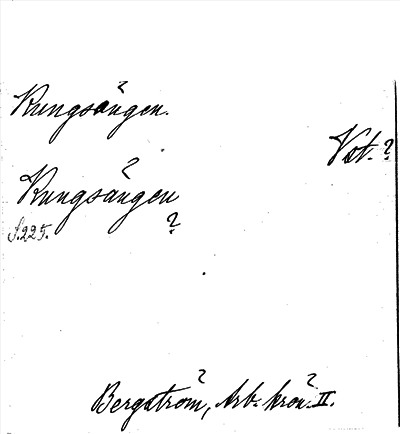 Kungsängen.
Vst.?
Kungsängen
?
S.225.
Bergström, Arb. krön. II.